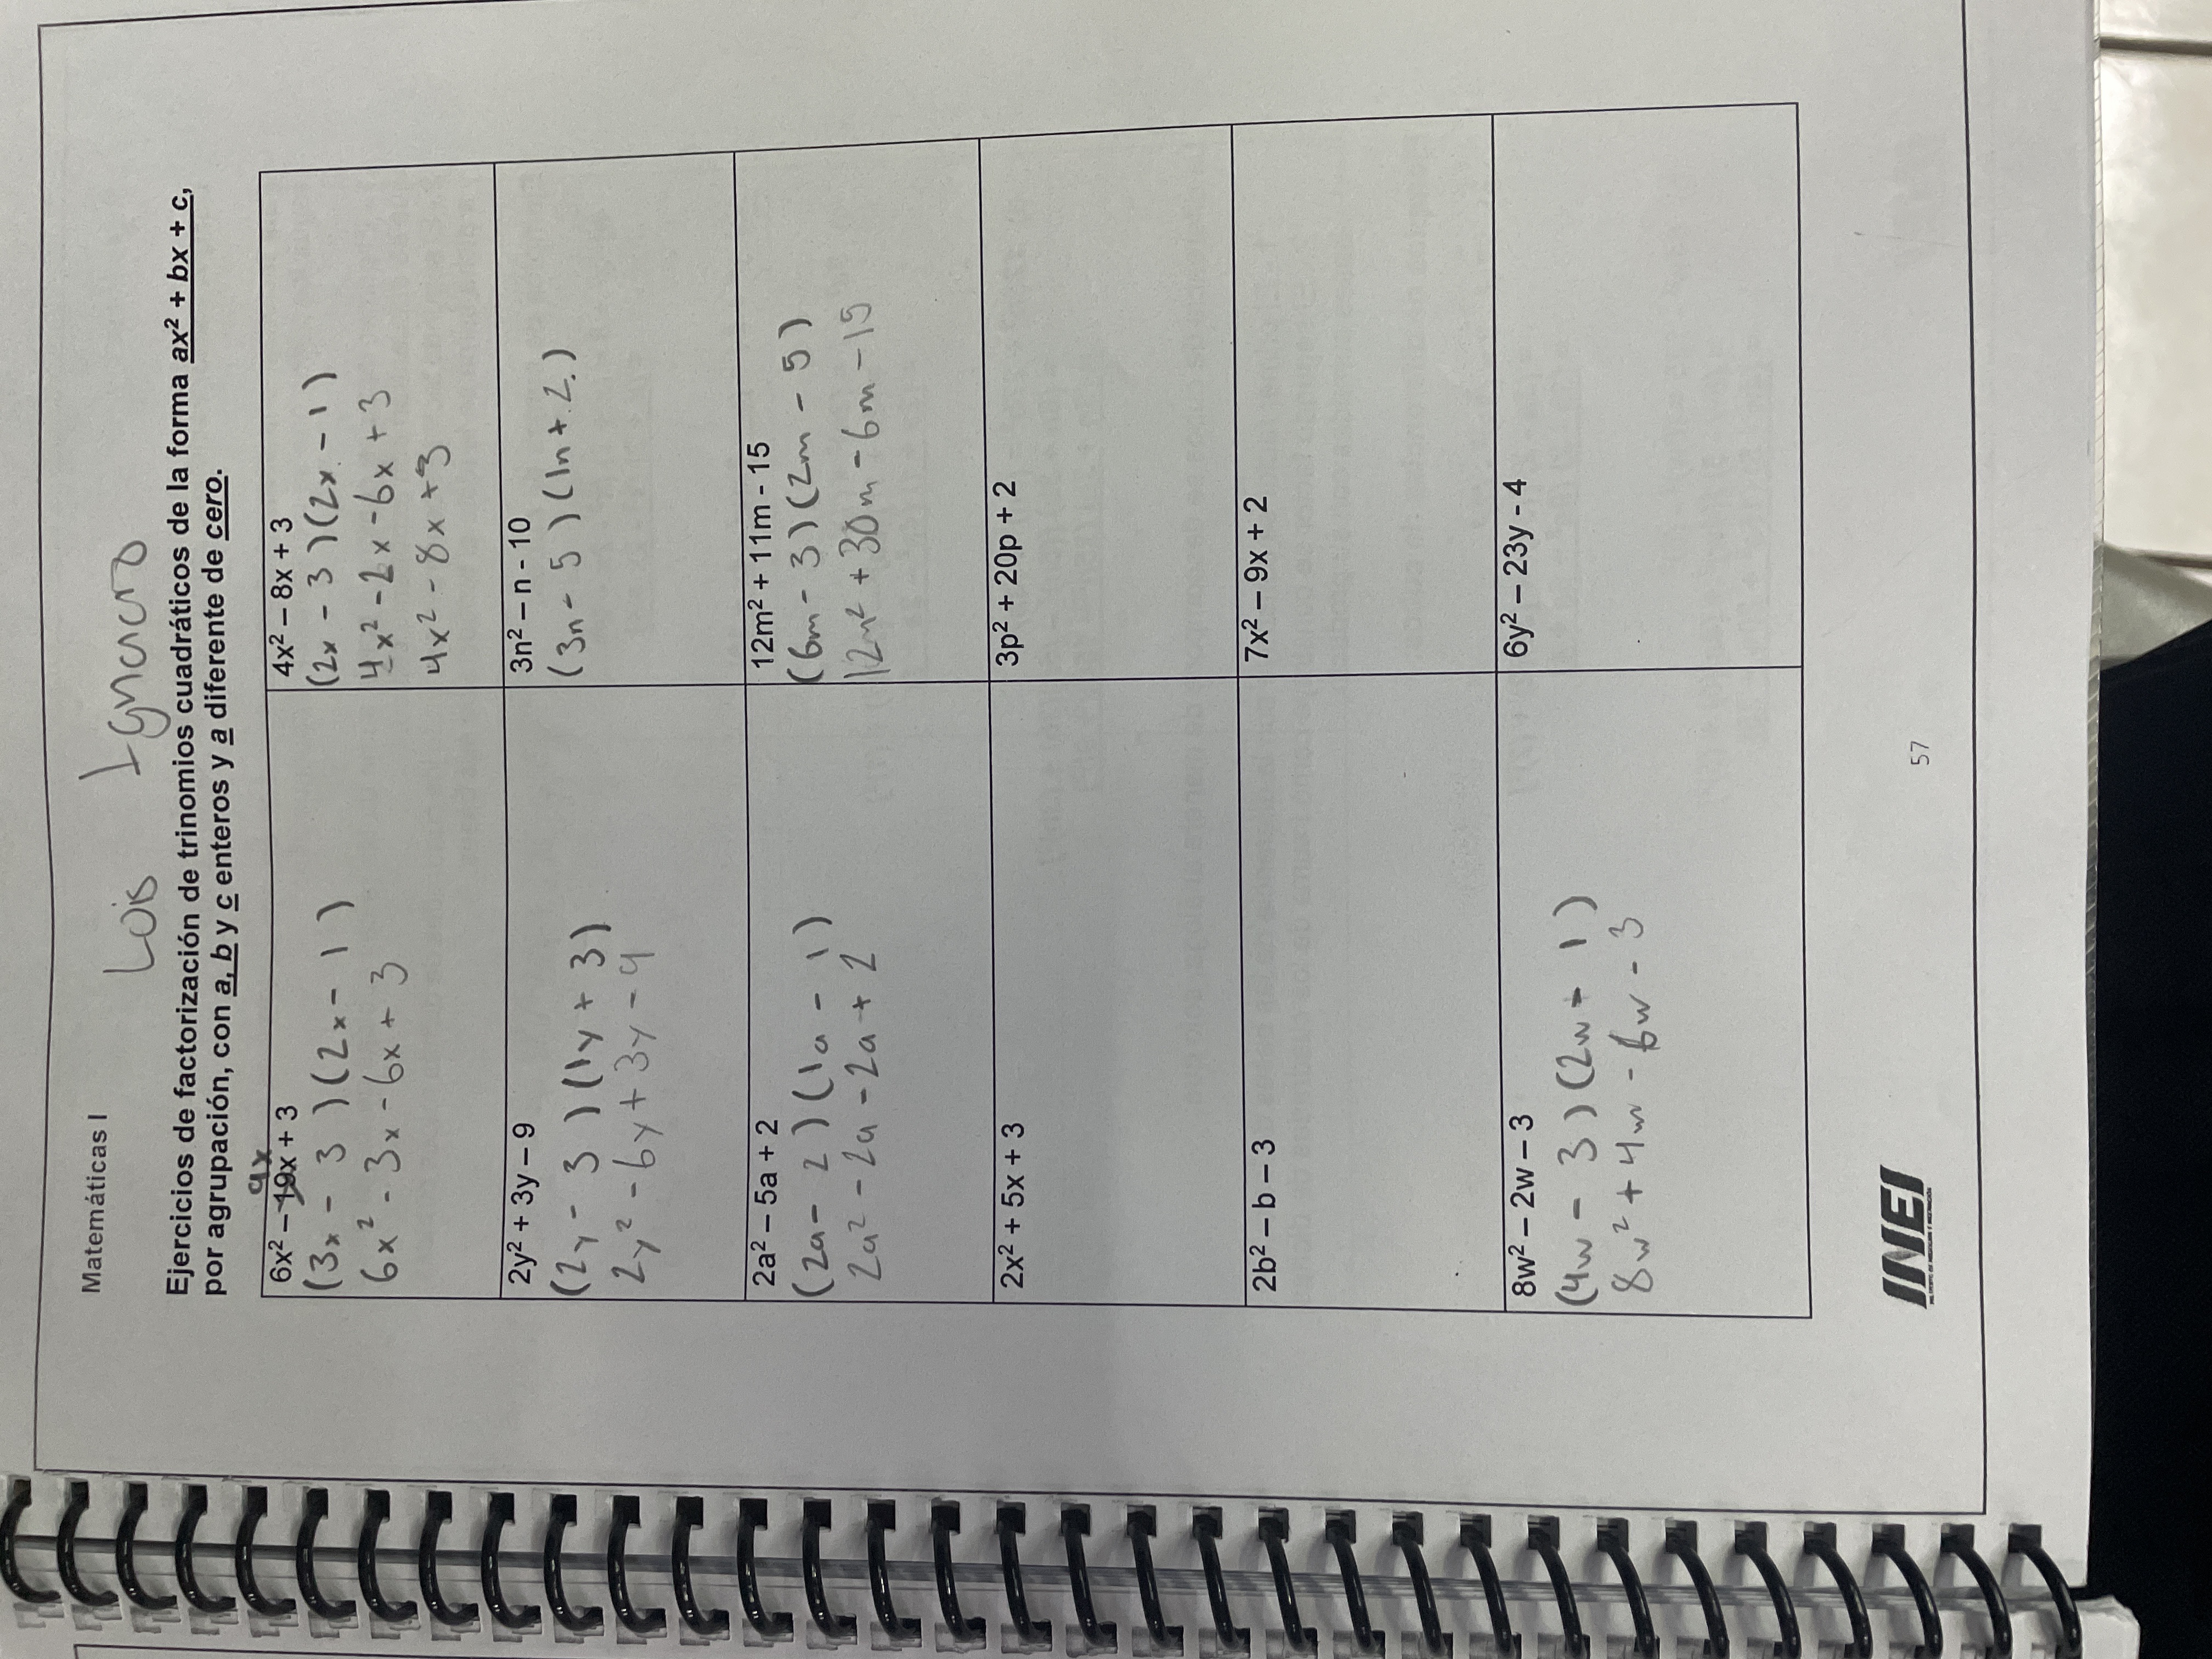 Matemáticas I
Lois Ignacio
Ejercicios de factorización de trinomios cuadráticos de la forma ax² + bx + c,
por agrupación, con a, b y c enteros y a diferente de cero.
9x
6x² – 19x + 3
(3x - 3)(2x - 1)
6x² - 3x - 6x + 3
4x² – 8x + 3
(2x - 3)(2x - 1)
4x² - 2x - 6x + 3
4x² - 8x + 3
2y² + 3y – 9
(2y - 3)(1y + 3)
2y² - 6y + 3y - 9
3n² – n - 10
(3n - 5)(1n + 2)
2a² – 5a + 2
(2a - 2)(1a - 1)
2a² - 2a - 2a + 2
12m² + 11m - 15
(6m - 3)(2m - 5)
12m² + 30m - 6m - 15
2x² + 5x + 3
3p² + 20p + 2
2b² – b – 3
7x² – 9x + 2
8w² – 2w – 3
(4w - 3)(2w + 1)
8w² + 4w - 6w - 3
6y² – 23y - 4
INEI
57